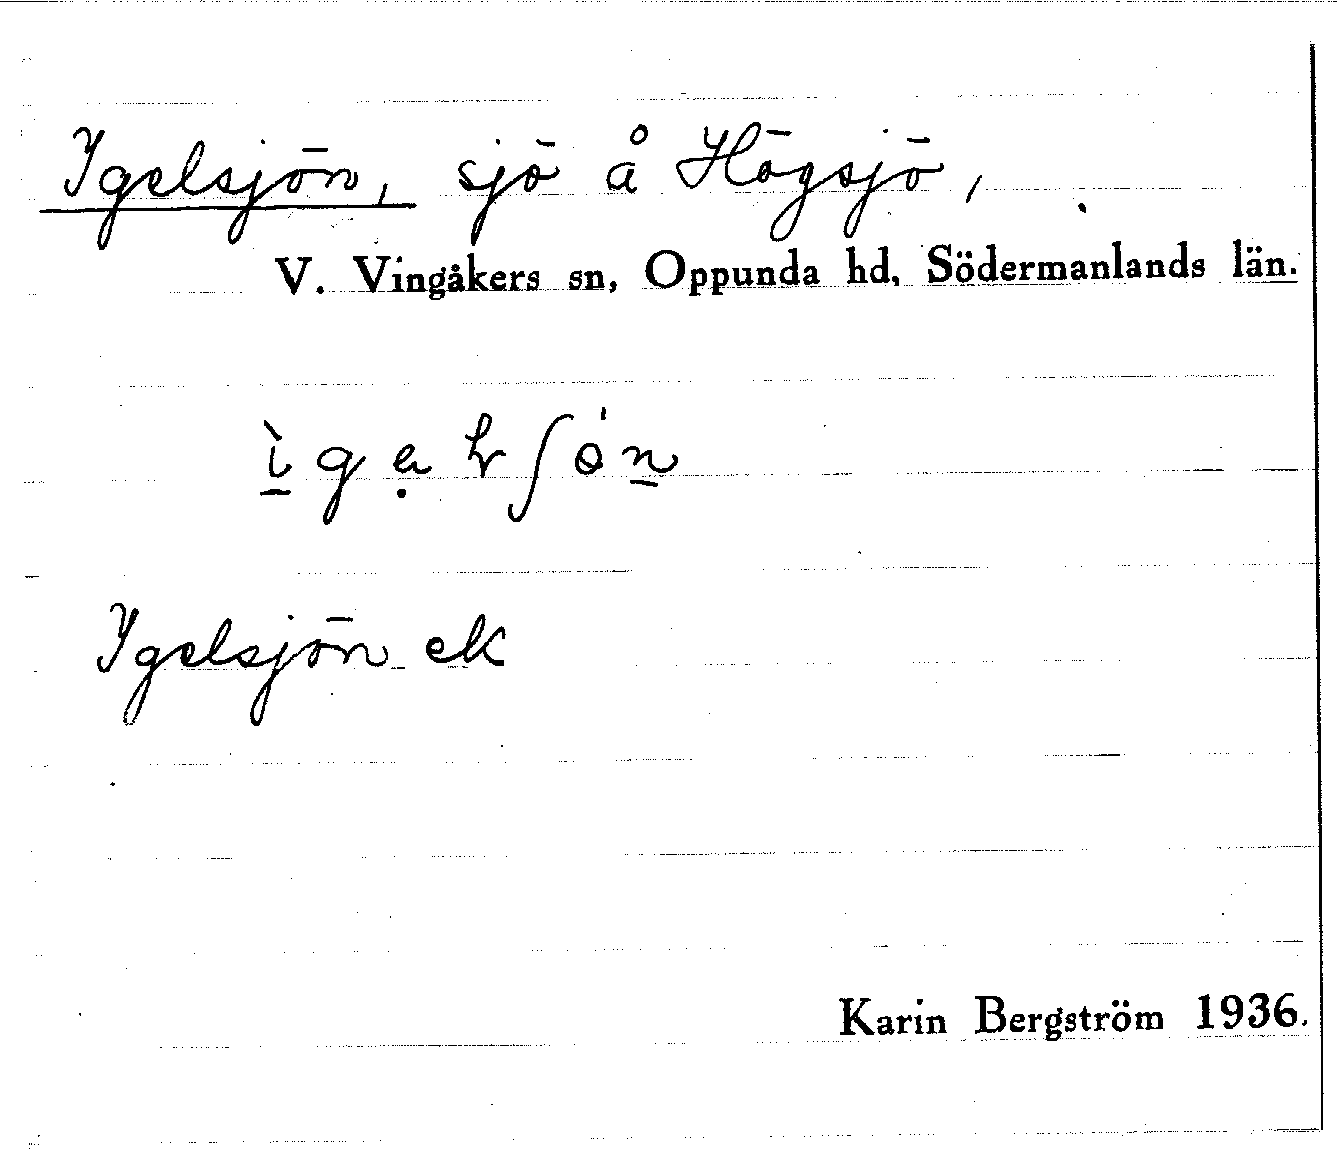 Igelsjön, sjö å Högsjö,
V. Vingåkers sn, Oppunda hd, Södermanlands län.
Igelsjön ek
Karin Bergström 1936.